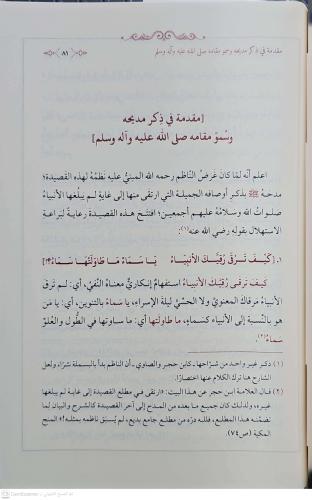 مقدمة في ذكر مديحه وسمو مقامه صلى الله عليه وآله وسلم
٨١
[مقدمة في ذِكر مديحه
وسُموّ مقامه صلى الله عليه وآله وسلم]
اعلم أنه لمّا كان غرضُ الناظم رحمه الله المبنيُّ عليه نظمُهُ لهذه القصيدة؛
مدحَهُ ﷺ بذكر أوصافه الجميلة التي ارتقى منها إلى غايةٍ لم يبلغها الأنبياءُ
صلواتُ الله وسلامُهُ عليهم أجمعين؛ افتتحَ هذه القصيدة رعايةً لبراعة
الاستهلال بقوله رضي الله عنه(١):
١. [كَيْفَ تَرْقَى رُقِيَّكَ الأَنبياءُ يَا سَمَاءً مَا طَاوَلَتْهَا سَمَاءُ؟!]
كيفَ ترقى رُقيَّكَ الأنبياءُ استفهامٌ إنكاريٌّ معناهُ النَّفيُ، أي: لم تَرقَ
الأنبياءُ مَرقاكَ المعنويَّ ولا الحِسِّيَّ ليلةَ الإسراءِ، يا سماءً بالتنوين، أي: يا مَن
هو بالنِّسبة إلى الأنبياء كسماءٍ، ما طاولتها أي: ما ساوتها في الطُّول والعُلوِّ
سماءٌ(٢).
(١) ذكر غير واحد من شرّاحها، كابن حجر والصاوي، أن الناظم بدأ بالبسملة شرًا، ولعل
الشارح هنا ترك الكلام عنها اختصارًا.
(٢) قال العلامة ابن حجر عن هذا البيت: «ارتقى في مطلع القصيدة إلى غاية لم يبلغها
غيره، ولذلك كان جميع ما بعده من المدح إلى آخر القصيدة كالشرح والبيان لما
تضمَّنه هذا المطلع، فلله درّه من مطلع جامع بديع، لم يُسبق ناظمه بمثله!» المنح
المكية (ص٧٤).
CamScanner